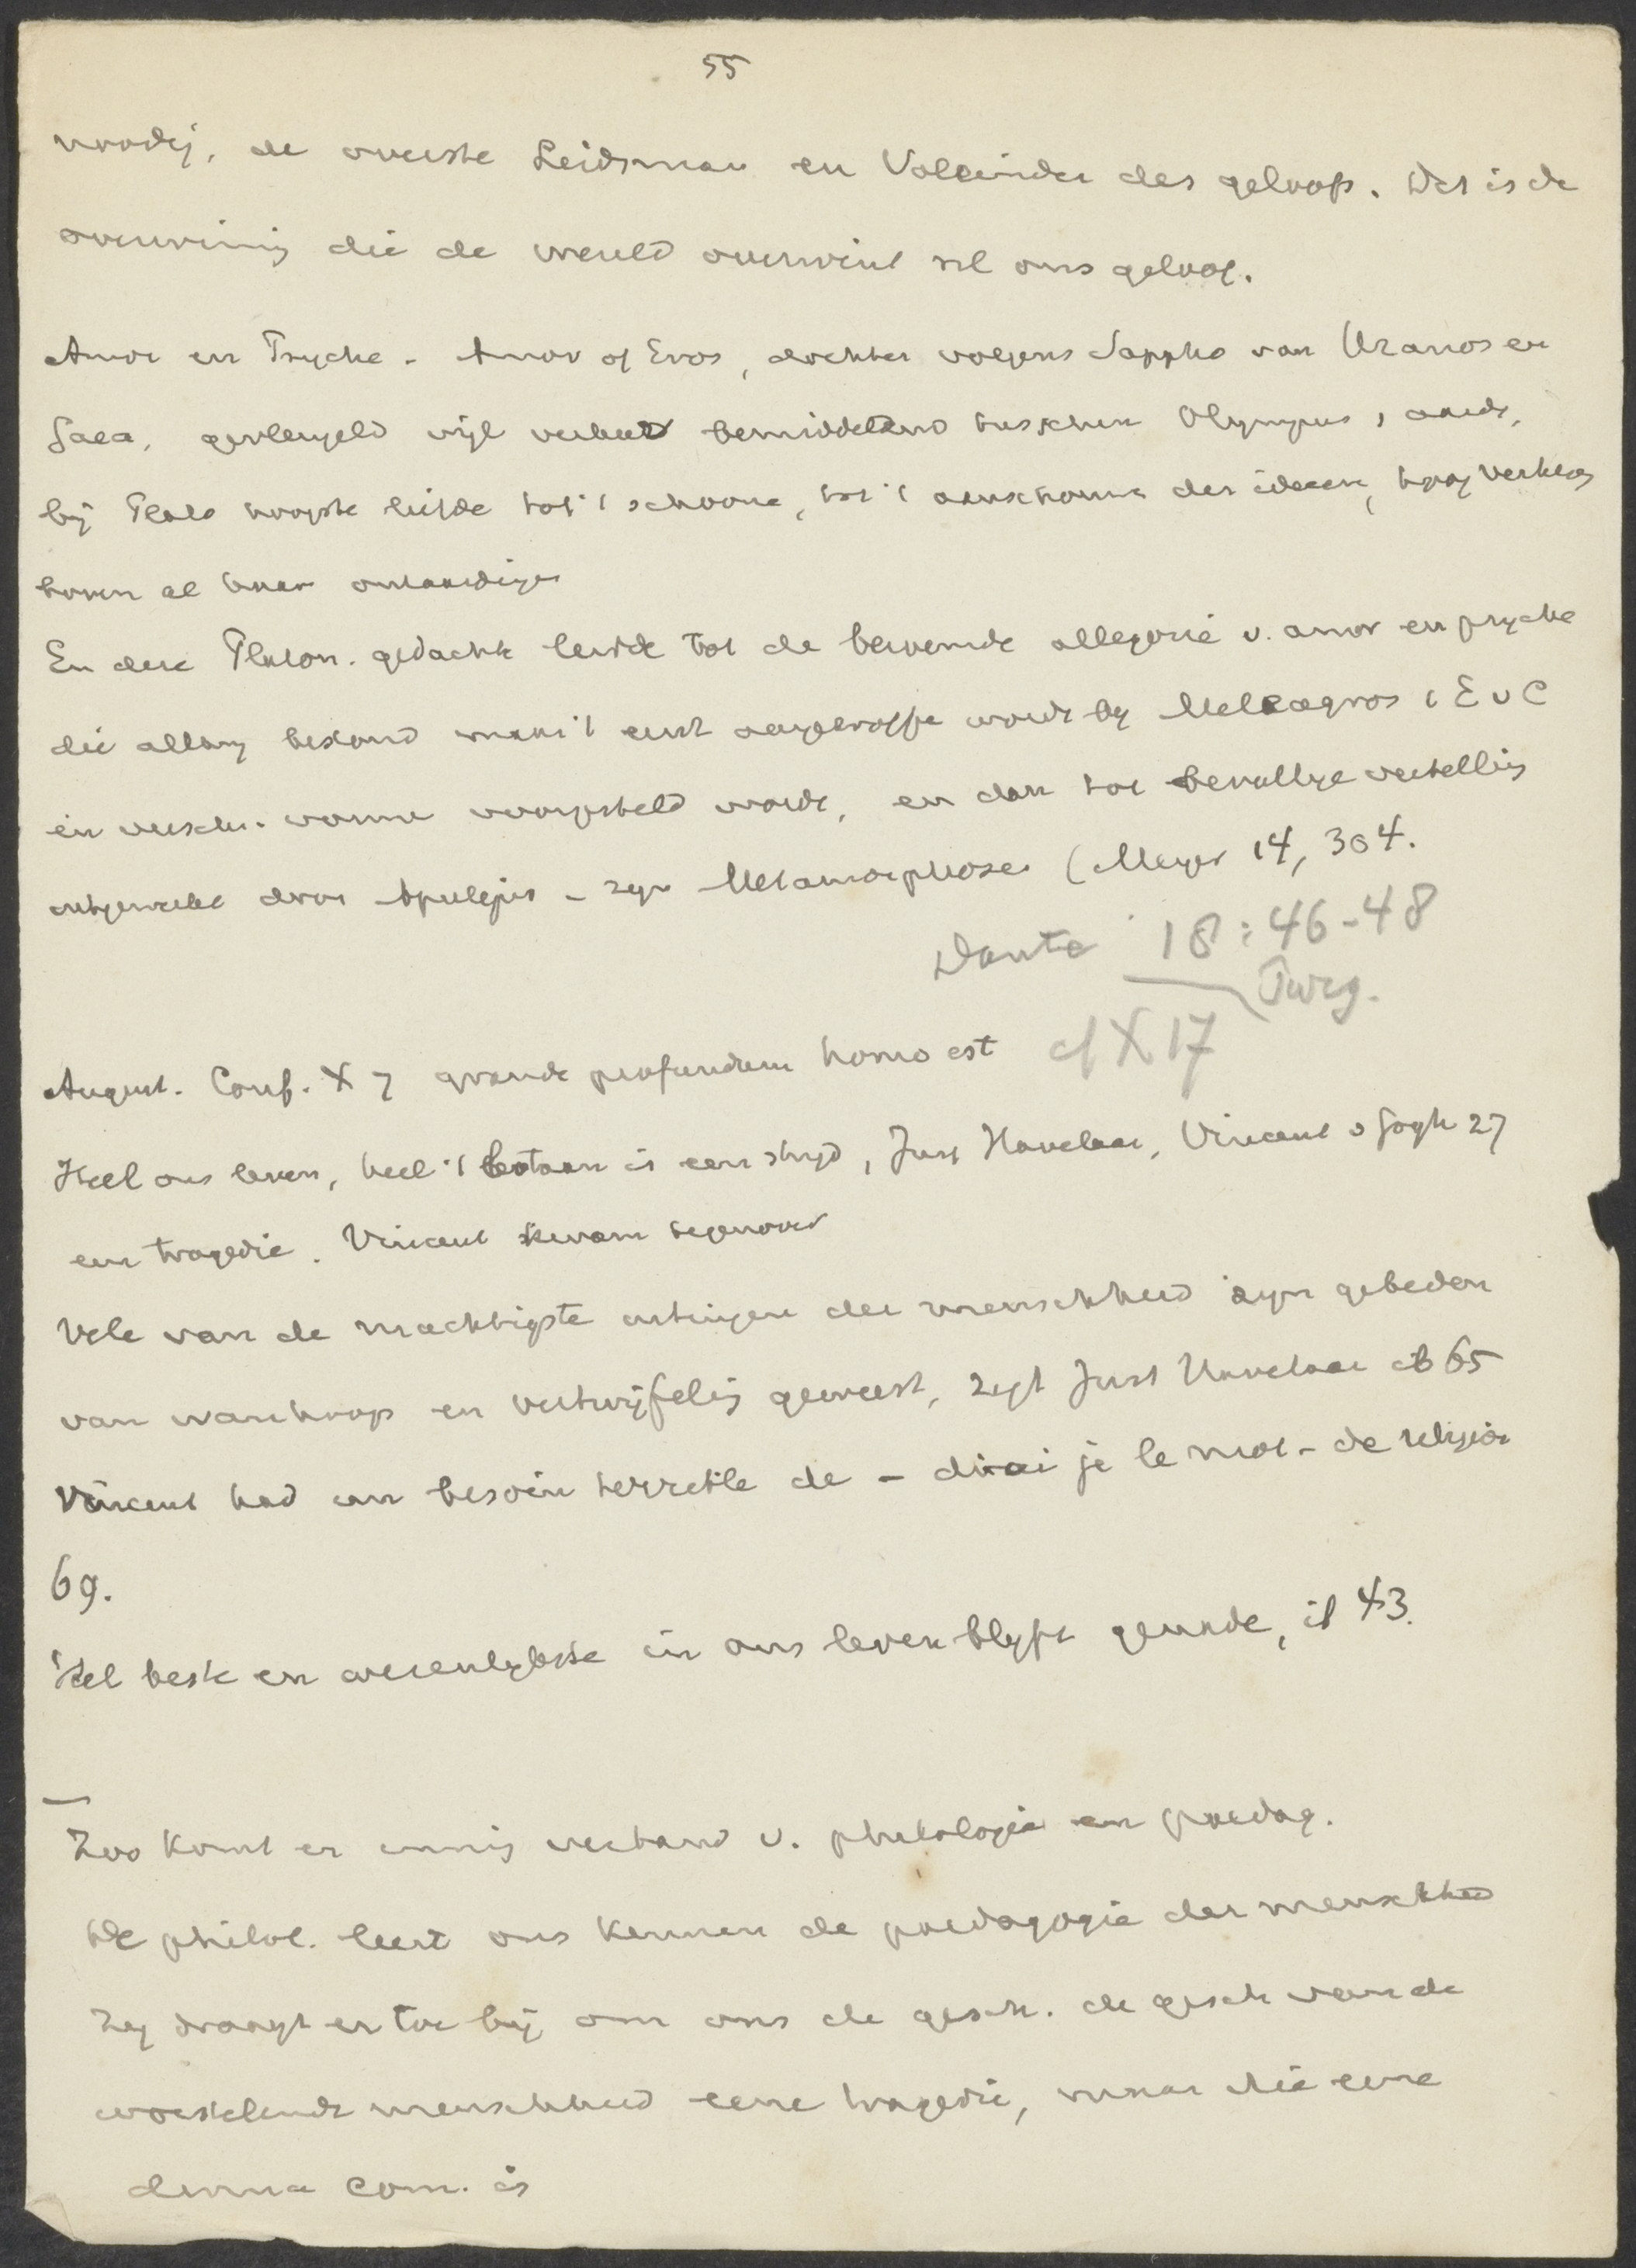 55
noodig, de overste Leidsman en Voleinder des geloofs. Dat is de
overwinnig die de wereld overwint nl ons geloof.
Amor en Psyche - Amor of Eros, dochter volgens Sappho van Uranos en
Gaea, gevleugeld wijl verbeeld bemiddelend tusschen Olympus, aarde,
bij Plato hoogste liefde tot 't schoone, tot 't aanschouwen der ideeen, hoog verheven
boven al haar ontaardigen
En deze Platon. gedachte leidde tot de beroemde allegorie v. amor en psyche
die allang bestond maar 't eerst aangetroffen wordt by Meleagros 1 E v C
in versch. vorme voorgesteld wordt, en dan tot bevallige vertelling
uitgewerkt door Apulejus - zyn Metamorphoses (Meyer 14, 304.
Dante 18:46-48
Purg.
August. Conf. X 7 grande profundum homo est cf X 17
Heel ons leven, heel 't bestaan is een stryd, Just Havelaar, Vincent v Gogh 27
een tragedie. Vincent kwam tegenover
Vele van de machtigste uitingen der menschheid zyn gebeden
van wanhoop en vertwijfelig geweest, zegt Just Havelaar ib 65
Vincent had un besoin terrible de - dirai je le mot - de religion
69.
Het beste en wezenlykste in ons leven blyft geheim, ib 43.
Zoo komt er innig verband v. philologie en paedag.
De philol. leert ons kennen de paedagogie der menschheid
Zy draagt er toe bij om ons de gesch. de gesch van de
worstelende menschheid eene tragedie, maar die eene
divina com. is